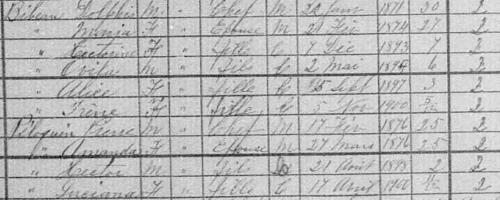 " M " Chef M 20 Juin 1871 29 2
" F " Epouse M 21 Fév 1874 27 2
" F " Fille C 7 Déc 1893 7 2
" Ovila M " Fils C 2 Mai 1894 6 2
" Alice F " Fille C 15 Sept 1897 3 2
" Irène F " Fille C 5 Nov 1900 2
Péloquin Pierre M " Chef M 17 Fév 1876 25 2
" Amanda F " Epouse M 27 Mars 1876 25 2
" Hector M " Fils C 21 Août 1898 2 2
" Luciana F " Fille C 17 Août 1900 2